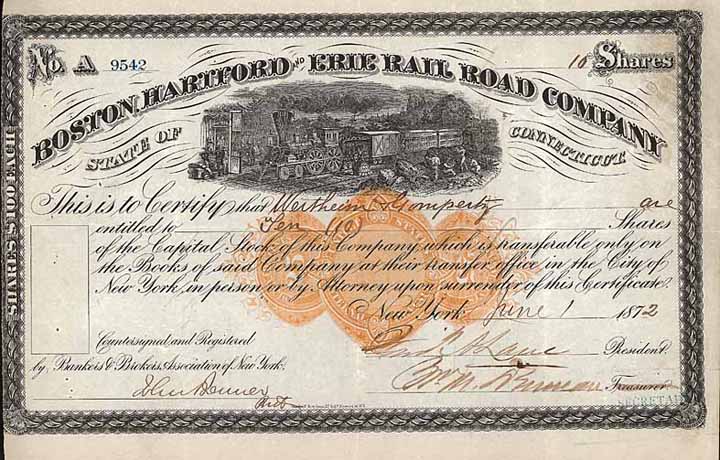 No A 9542 10 Shares
BOSTON, HARTFORD AND ERIE RAIL ROAD COMPANY
STATE OF CONNECTICUT.
SHARES $100 EACH
This is to Certify that Wertheim & Gompertz are
entitled to Ten (10) Shares
of the Capital Stock of this Company which is transferable only on
the Books of said Company at their transfer office in the City of
New York, in person or by Attorney upon surrender of this Certificate.
New York June 1 1872
Countersigned and Registered
by Bankers & Brokers Association of New York.
President.
Treasurer
SECRETAR
John Bonner
Prest